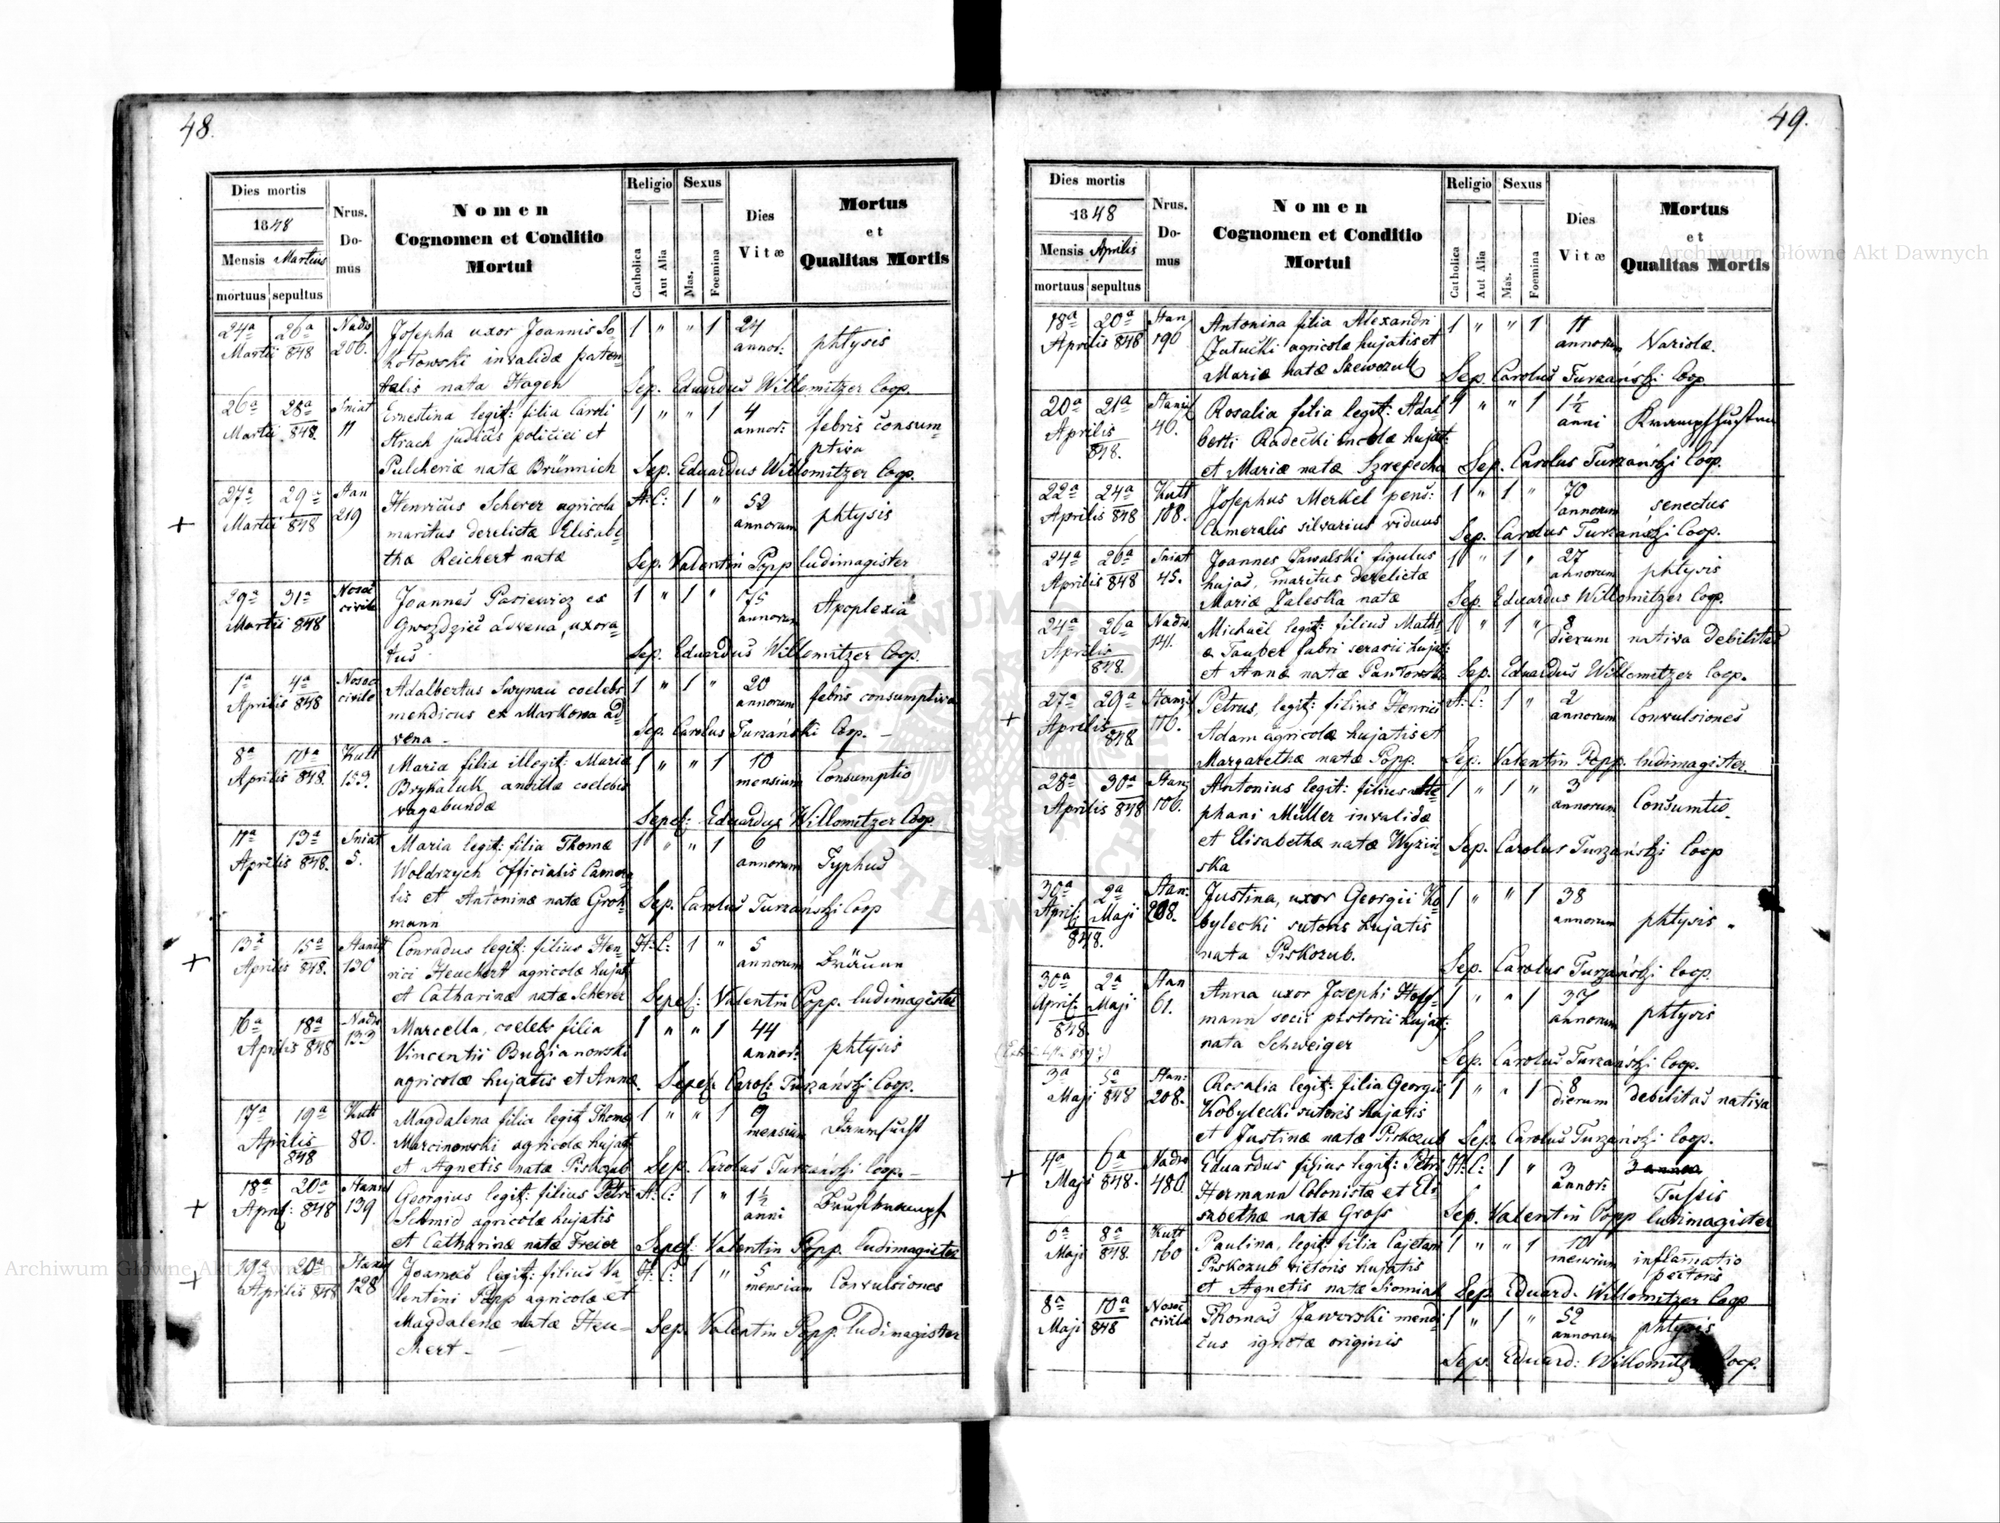 48.
Dies mortis
1848
Mensis Martius
mortuus sepultus
Nrus. Do- mus
Nomen
Cognomen et Conditio
Mortui
Religio
Catholica
Aut Alia
Sexus
Mas.
Foemina
Dies
Vitæ
Mortus
et
Qualitas Mortis
24a 26a Nadw 1 " " 1 24
Martii 848 206. annor: phtysis
Josepha uxor Joannis So
kołowski invalidæ paten
talis nata Hagen
Sep. Eduardus Willomitzer Coop.
26a 28a Sniat 1 " " 1 4
Martii 848. 11 annor: febris consum-
ptiva
Ernestina legit: filia Caroli
Strach judicis politici et
Pulcheriæ natæ Brünnich
Sep. Eduardus Willomitzer Coop.
27a 29a Stan H: C: 1 " 52
Martii 848 219 annorum phtysis
Henricus Scherer agricola
maritus derelictæ Elisabe-
tha Reichert natæ
Sep. Valentin Popp ludimagister
29a 31a Nosoc 1 " 1 " 75
Martii 848 civile annorum Apoplexia
Joannes Pasiewicz ex
Gwozdziec advena, uxora-
tus
Sep. Eduardus Willomitzer Coop.
1a 4a Nosoc 1 " 1 " 20
Aprilis 848 civile annorum febris consumptiva
Adalbertus Swynau coelebs
mendicus ex Markowa ad
vena -
Sep. Carolus Turzański Coop. -
8a 10a Kutt 1 " " 1 10
Aprilis 848. 153. mensium Consumptio
Maria filia illegit: Mariæ
Brykaluk ancillæ coelebis
vagabundæ
Sepel: Eduardus Willomitzer Coop.
11a 13a Sniat 1 " " 1 6
Aprilis 848. 5. annorum Typhus
Maria legit: filia Thomæ
Woldrzych officialis Camera
lis et Antoninæ natæ Groh-
mann
Sep. Carolus Turzański Coop
13a 15a Stanisl H: C: 1 " 5
Aprilis 848. 130 annorum Bräune
Conradus legit: filius Hen-
rici Heuchert agricolæ hujat
et Catharinæ natæ Scherer
Sepel: Valentin Popp. ludimagister
16a 18a Nadw 1 " " 1 44
Aprilis 848 133 annor: phtysis
Marcella, coelebs filia
Vincentii Budzianowski
agricolæ hujatis et Annæ.
Sepel: Carol: Turzański Coop.
17a 19a Kutt 1 " " 1 9
Aprilis 848 80. mensium Darrsucht
Magdalena filia legit: Thomæ
Marcinowski agricolæ hujat
et Agnetis natæ Piskozub
Sep. Carolus Turzański Coop. -
18a 20a Stanisl H: C: 1 " 1½
April: 848 139 anni Brustkrampf
Georgius legit: filius Petri
Schmid agricolæ hujatis
et Catharinæ natæ Freier
Sepel: Valentin Popp. ludimagister
19a 20a Stanisl H: C: 1 " 5
Aprilis 848 128 mensium Convulsiones
Joannes legit: filius Va
lentini Popp agricolæ et
Magdalenæ natæ Heu-
chert -
Sep. Valentin Popp. ludimagister
49.
Dies mortis
1848
Mensis Aprilis
mortuus sepultus
Nrus. Do- mus
Nomen
Cognomen et Conditio
Mortui
Religio
Catholica
Aut Alia
Sexus
Mas.
Foemina
Dies
Vitæ
Mortus
et
Qualitas Mortis
18a 20a Stan 1 " " 1 11
Aprilis 848 190 annorum Variolæ.
Antonina filia Alexandri
agricolæ hujatis et
Mariæ natæ Szewczuk
Sep. Carolus Turzański Coop
20a 21a Stanisl 1 " " 1 1½
Aprilis 848. 40. anni Krampfhusten
Rosalia filia legit: Adal
berti Radecki incolæ hujat:
et Mariæ natæ
Sep. Carolus Turzański Coop.
22a 24a Kutt 1 " 1 " 70
Aprilis 848 108. annorum senectus
Josephus Merkel pens:
Cameralis silvarius viduus
Sep. Carolus Turzański Coop.
24a 26a Sniat 1 " 1 " 27
Aprilis 848 45. annorum phtysis
Joannes Jawalski figulus
hujas, maritus derelictæ
Mariæ Zaleska natæ
Sep. Eduardus Willomitzer Coop.
24a 26a Nadw 1 " 1 " 8
Aprilis 848. 141. dierum nativa debilitas
Michaël legit: filius Mathi-
æ Tauber fabri serarii hujat:
et Annæ natæ Pantowska
Sep. Eduardus Willomitzer Coop.
27a 29a Stanisl H: C: 1 " 2
Aprilis 848 116. annorum Convulsiones
Petrus, legit: filius Henrici
Adam agricolæ hujatis et
Margarethæ natæ Popp.
Sep. Valentin Popp. ludimagister.
28a 30a Stan 1 " 1 " 3
Aprilis 848 106. annorum Consumtio.
Antonius legit: filius Ste
phani Müller invalidæ
et Elisabethæ natæ Wyzin-
ska
Sep. Carolus Turzański Coop
30a 2a Stan: 1 " " 1 38
April: Maji 848. 208. annorum phtysis.
Justina, uxor Georgii Ko
bylecki sutoris hujatis
nata Piskozub.
Sep. Carolus Turzański Coop.
30a 2a Stan 1 " " 1 37
April: Maji 848. 61. annorum phtysis
Anna uxor Josephi Hoff-
mann socii pistorii hujat:
nata Schweiger
Sep. Carolus Turzański Coop.
3a 5a Stan: 1 " " 1 8
Maji 848 208. dierum debilitas nativa
Rosalia legit: filia Georgii
Kobylecki sutoris hujatis
et Justinæ natæ Piskozub
Sep. Carolus Turzański Coop.
4a 6a Nadw H: C: 1 " 3
Maji 848. 480. annor: Tussis
Eduardus filius legit: Petri
Hermann Colonistæ et Eli-
sabethæ natæ Gross
Sep. Valentin Popp ludimagister
6a 8a Kutt 1 " " 1 10
Maji 848. 160 mensium inflamatio
pectoris
Paulina, legit: filia Cajetani
Piskozub vietoris hujatis
et Agnetis natæ Siomiak
Sep. Eduard. Willomitzer Coop
8a 10a Nosoc 1 " 1 " 52
Maji 848 civile annorum phtysis
Thomas Jaworski mendi-
cus ignotæ originis
Sep. Eduard: Willomitzer Coop.
Archiwum Główne Akt Dawnych
Archiwum Główne Akt Dawnych